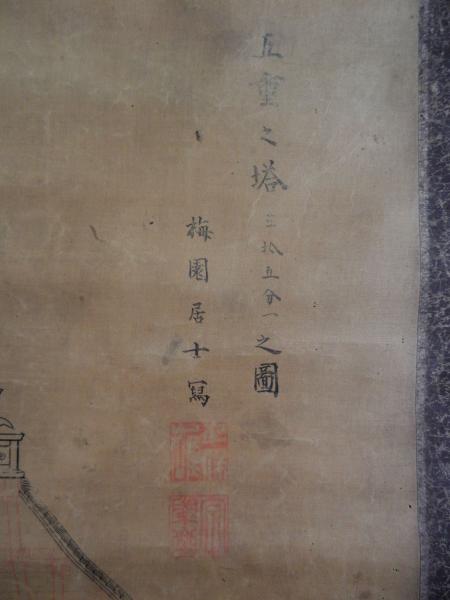 五重之塔三拾五分一之圖
梅園居士寫